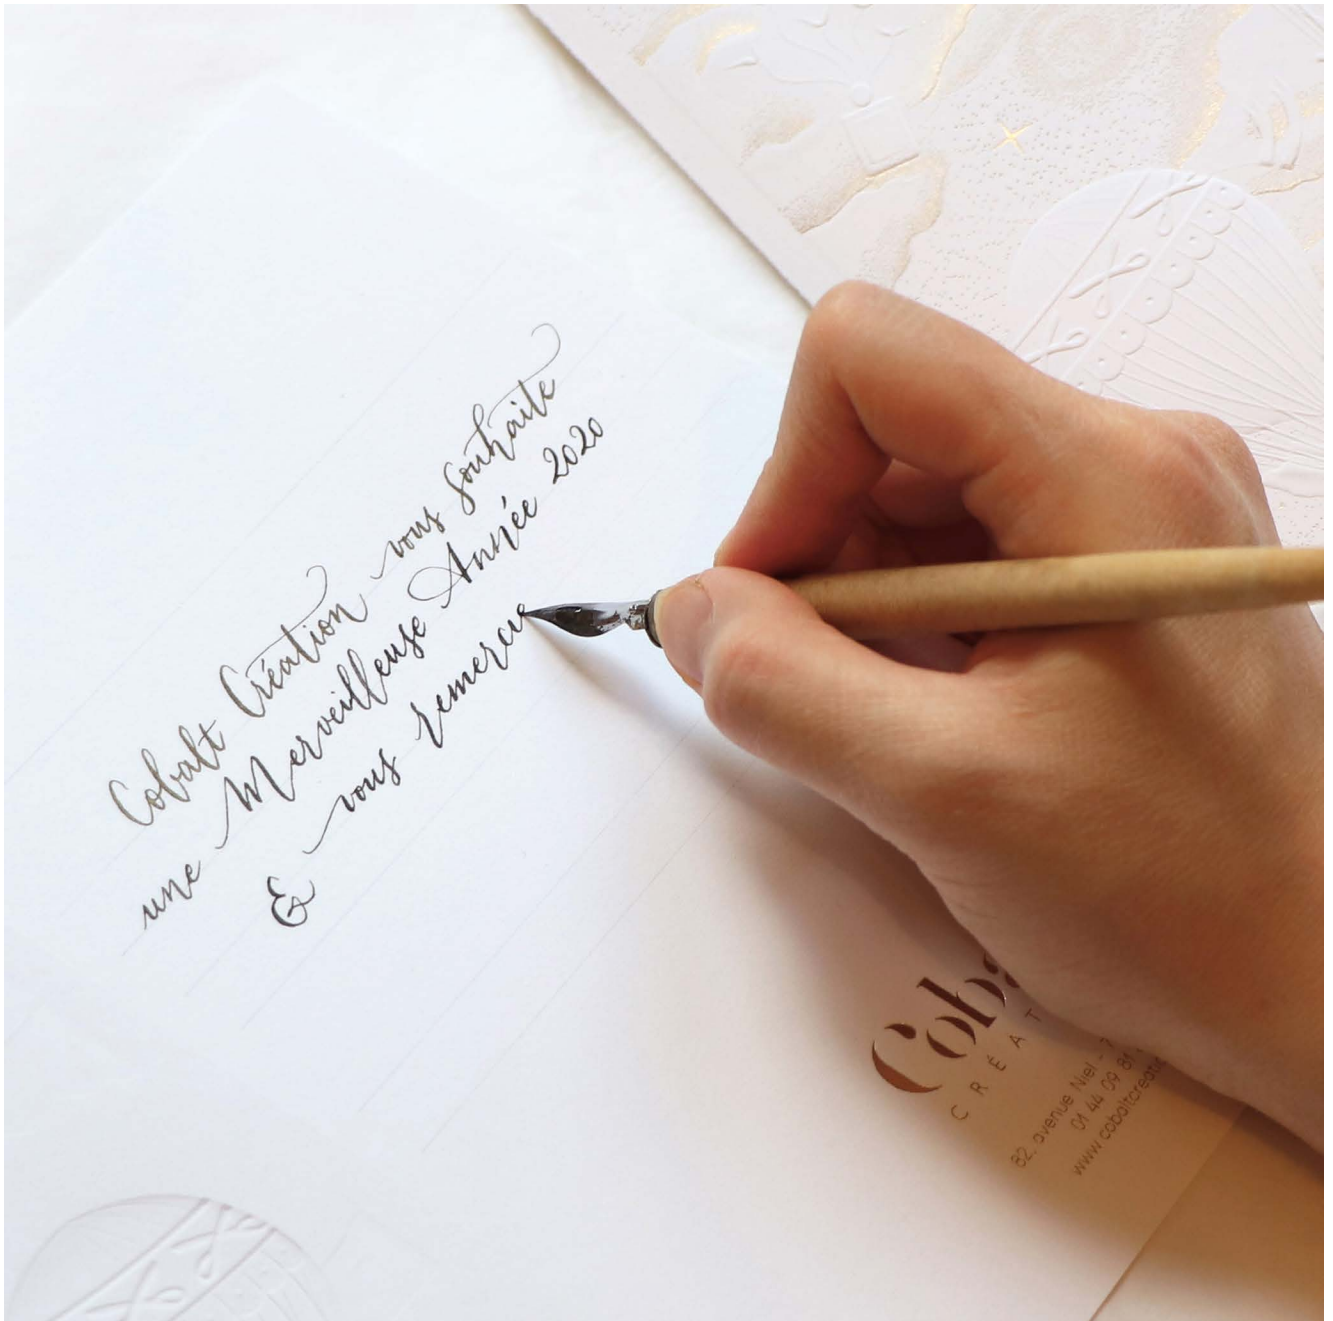 Cobalt Création vous souhaite
une Merveilleuse Année 2020
& vous remercie
Coba
CRÉAT
82, avenue Niel - 7
01 44 09 81
www.cobaltcreatio